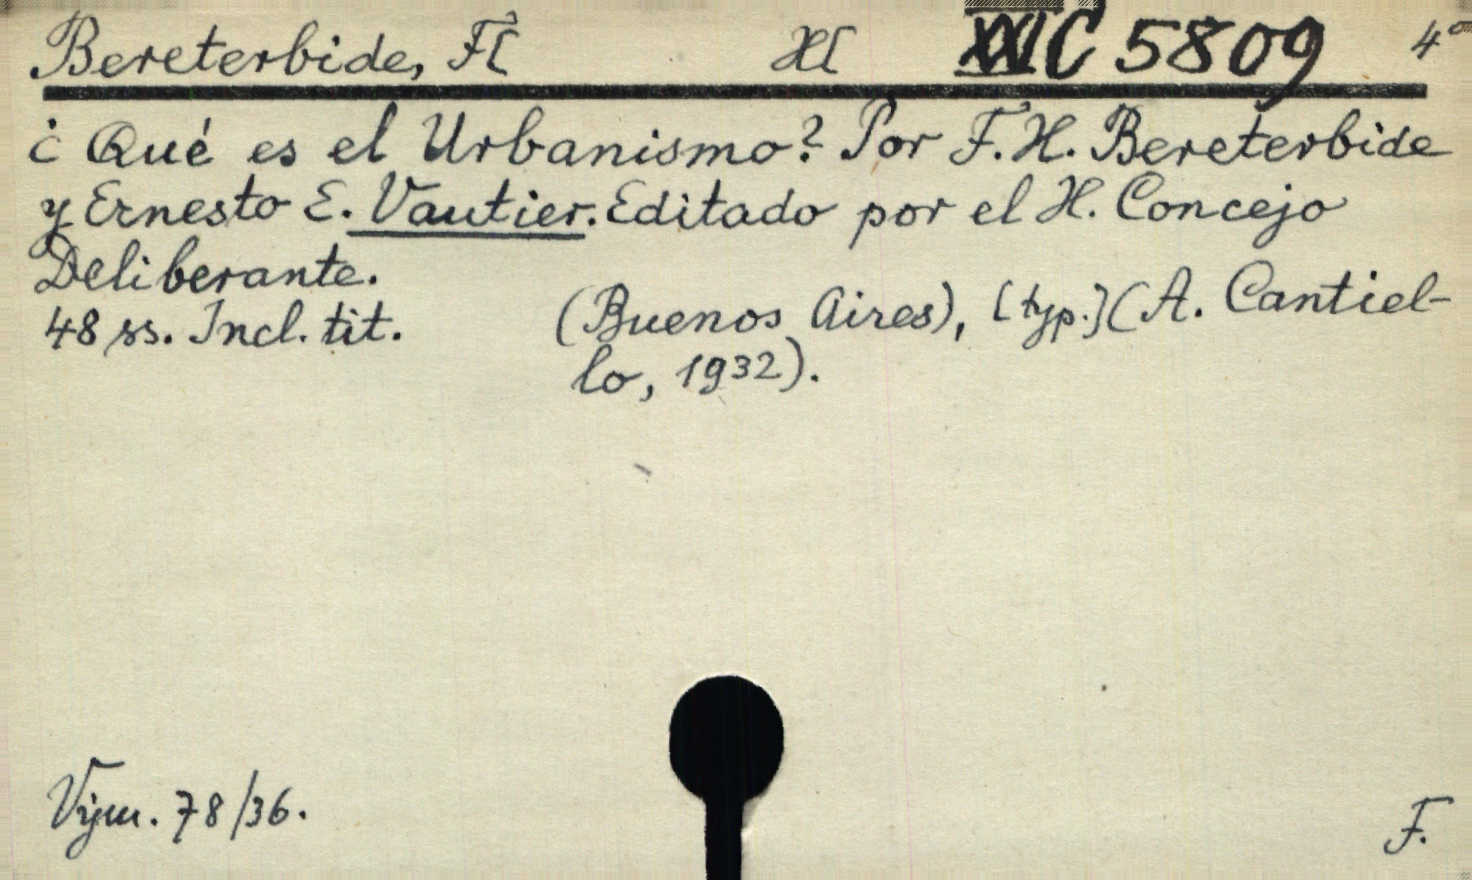 Bereterbide, F[ H[ XXIC 5809 4°
¿Qué es el Urbanismo? Por F. H. Bereterbide
y Ernesto E. Vautier. Editado por el H. Concejo
Deliberante.
48 ss. Incl. tit. (Buenos Aires), [typ.] (A. Cantiel-
lo, 1932).
Vým. 78/36. F.